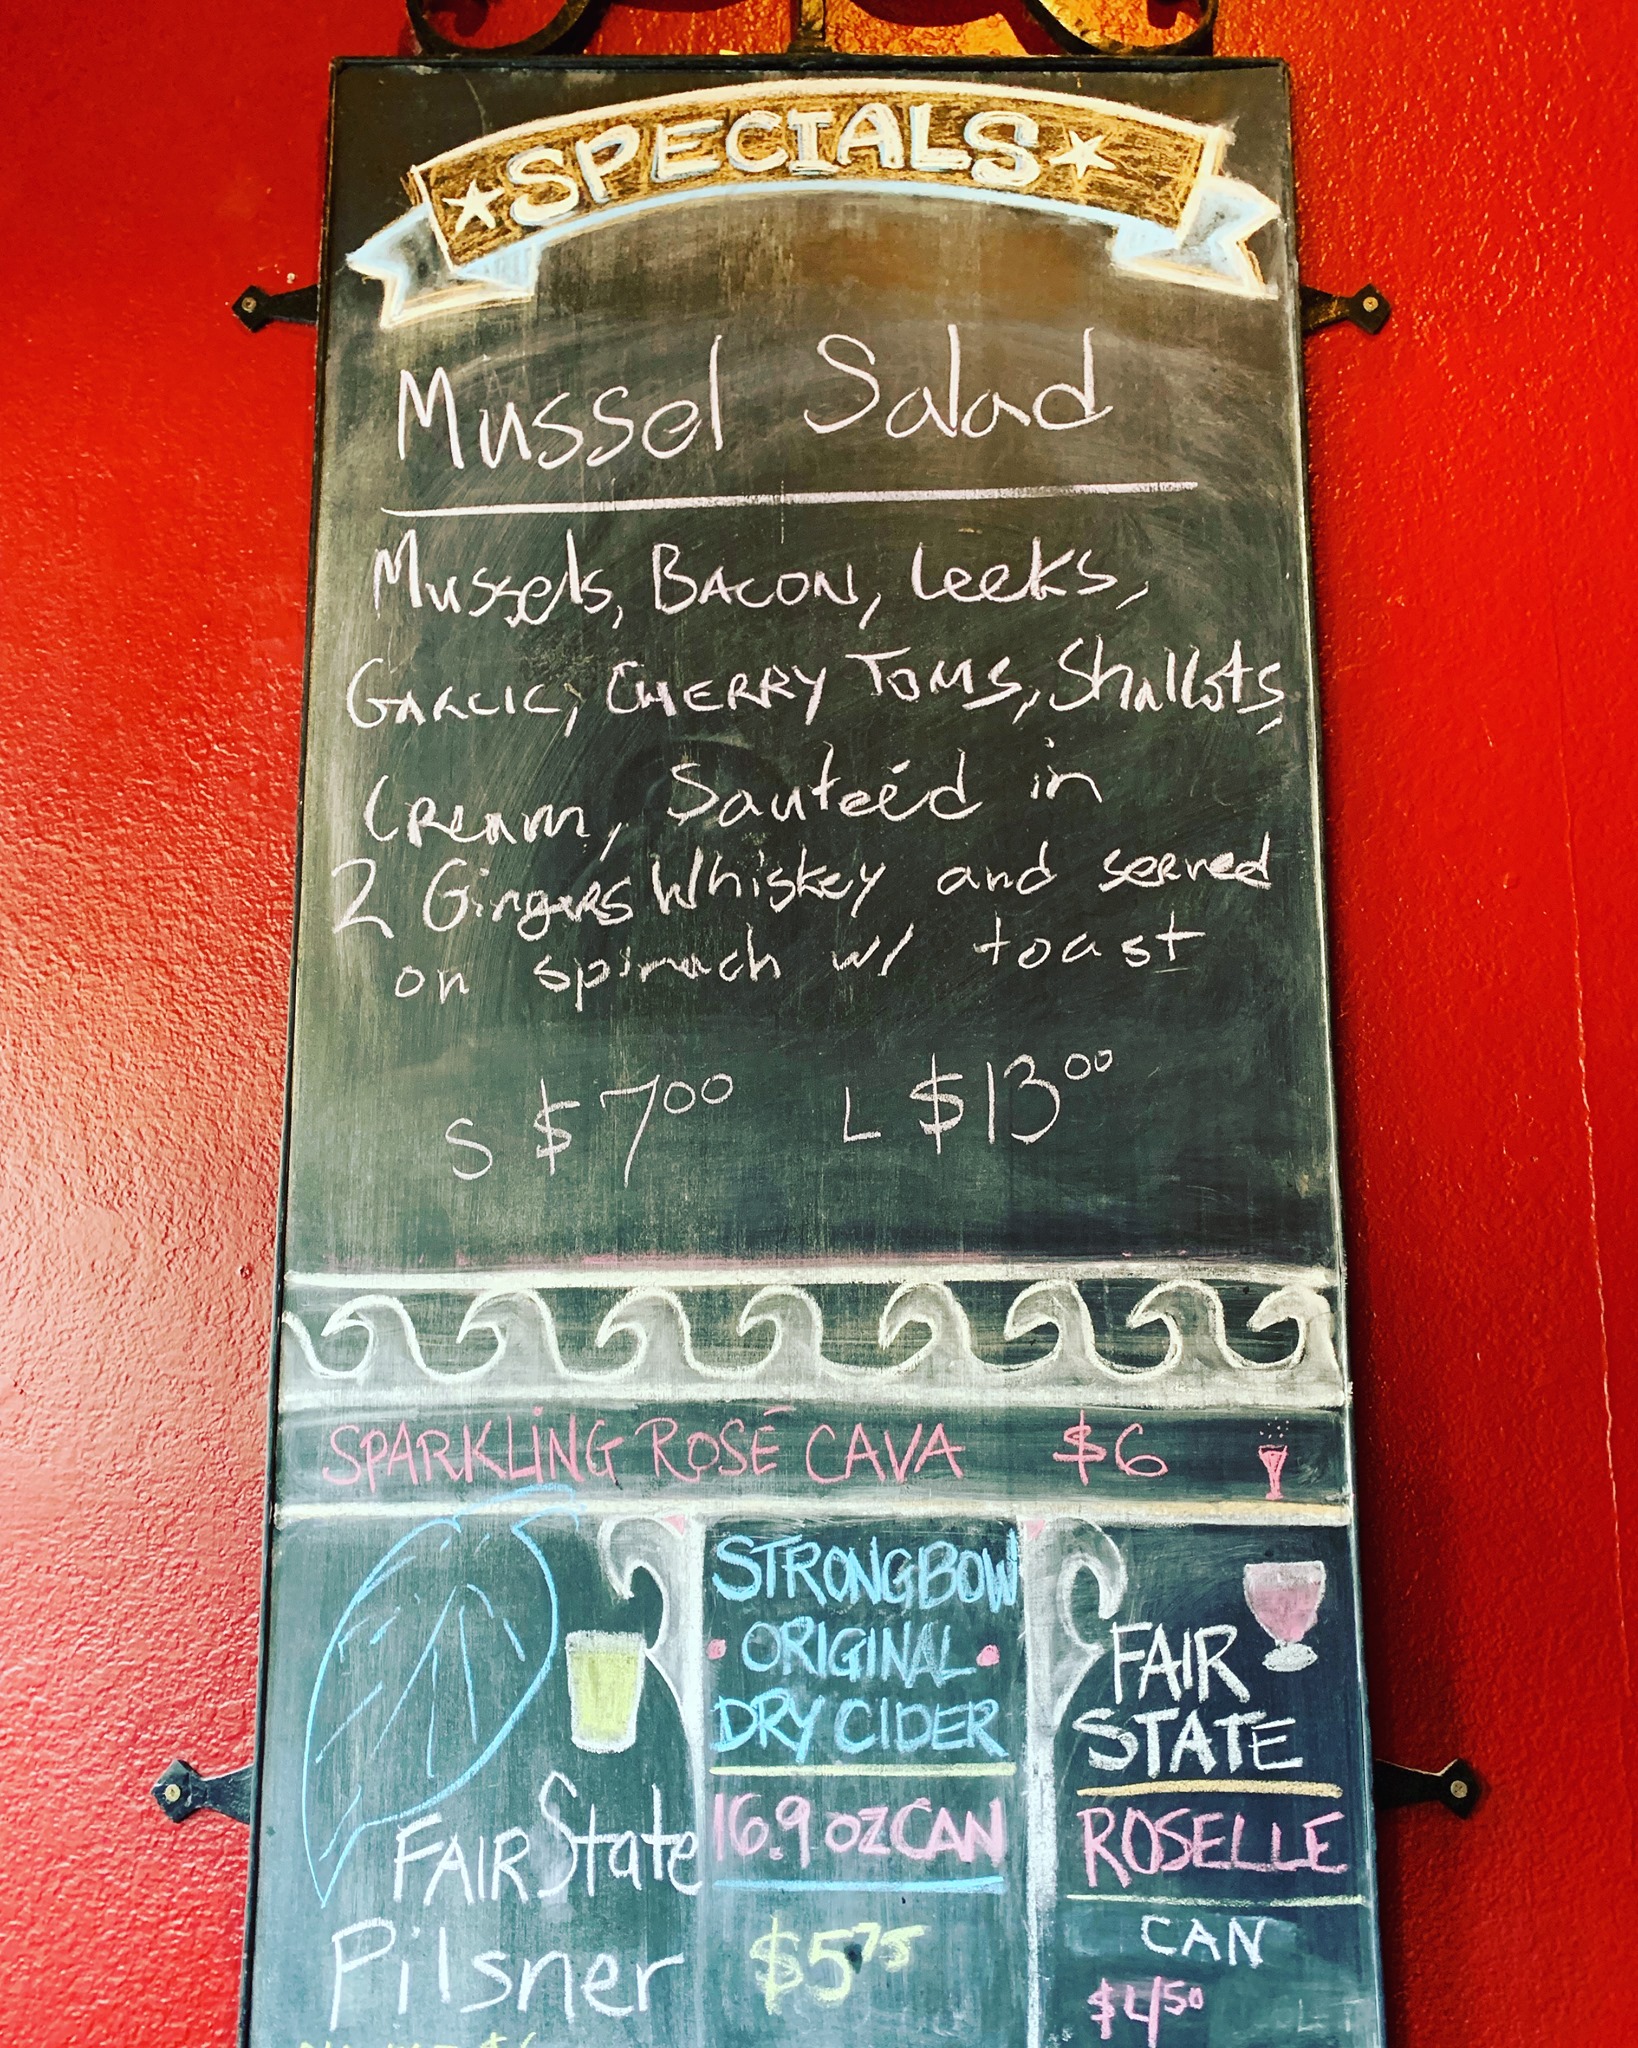 SPECIALS
Mussel Salad
Mussels, BACON, Leeks,
GARLIC, CHERRY TOMS, Shallots,
CREAM, Sauteéd in
2 Gingers Whiskey and served
on spinach w/ toast
S $7⁰⁰ L $13⁰⁰
SPARKLING ROSÉ CAVA $6
FAIR State
Pilsner
STRONGBOW
ORIGINAL
DRY CIDER
16.9 OZ CAN
$5⁷⁵
FAIR
STATE
ROSELLE
CAN
$4⁵⁰